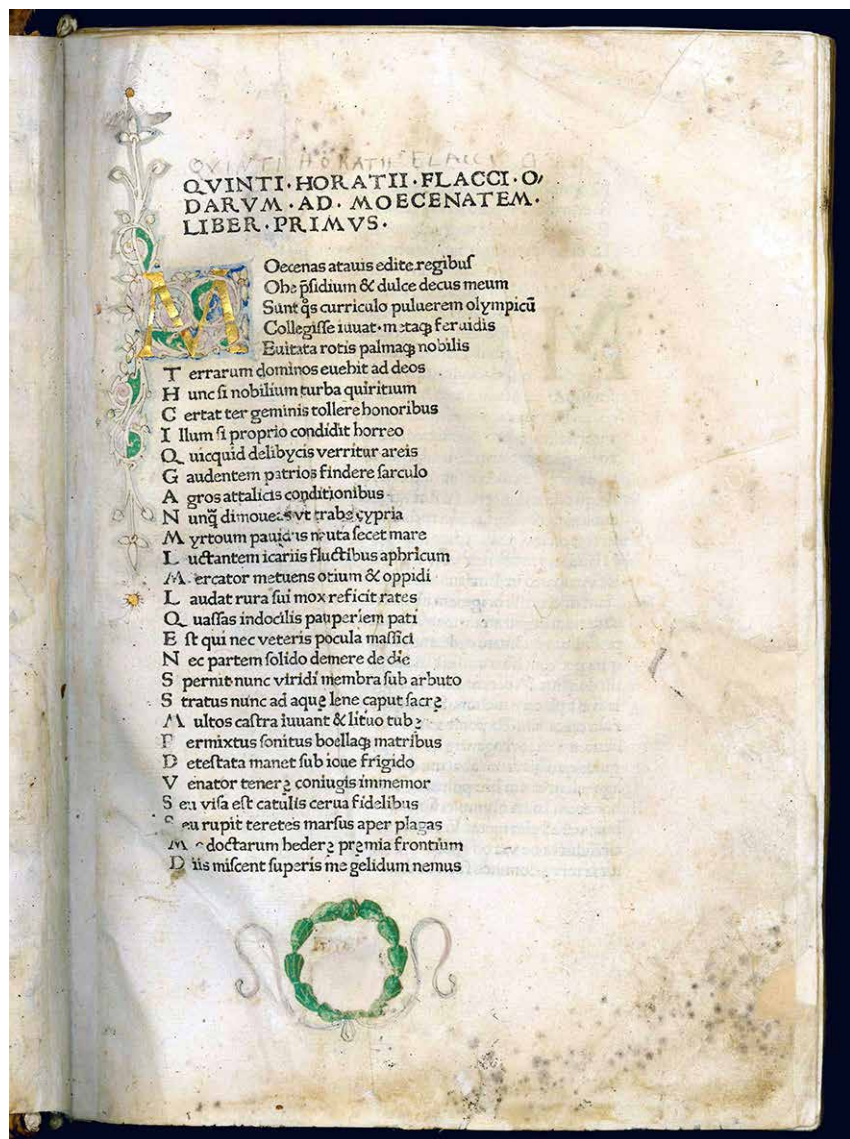 2
QVINTI HORATII FLACCI O
QVINTI·HORATII·FLACCI·O/
DARVM·AD·MOECENATEM·
LIBER·PRIMVS·
MOecenas atauis edite regibuſ
Obe p̄ſidium & dulce decus meum
Sunt q̊s curriculo puluerem olympicū
Collegiſſe iuuat·metaqꝫ feruidis
Euitata rotis palmaqꝫ nobilis
T errarum dominos euehit ad deos
H unc ſi nobilium turba quiritium
C ertat ter geminis tollere honoribus
I llum ſi proprio condidit horreo
Q uicquid delibycis verritur areis
G audentem patrios findere ſarculo
A gros attalicis conditionibus
N unq̄ dimoueas vt trabe cypria
M yrtoum pauidus nauta ſecet mare
L uctantem icariis fluctibus aphricum
M ercator metuens otium & oppidi
L audat rura ſui mox reficit rates
Q uaſſas indocilis pauperiem pati
E ſt qui nec veteris pocula maſſici
N ec partem ſolido demere de die
S pernit nunc viridi membra ſub arbuto
S tratus nunc ad aquę lene caput ſacrę
M ultos caſtra iuuant & lituo tubę
P ermixtus ſonitus boellaqꝫ matribus
D eteſtata manet ſub ioue frigido
V enator tenerę coniugis immemor
S eu viſa eſt catulis cerua fidelibus
S eu rupit teretes marſus aper plagas
M e doctarum hederę pręmia frontium
D iis miſcent ſuperis me gelidum nemus